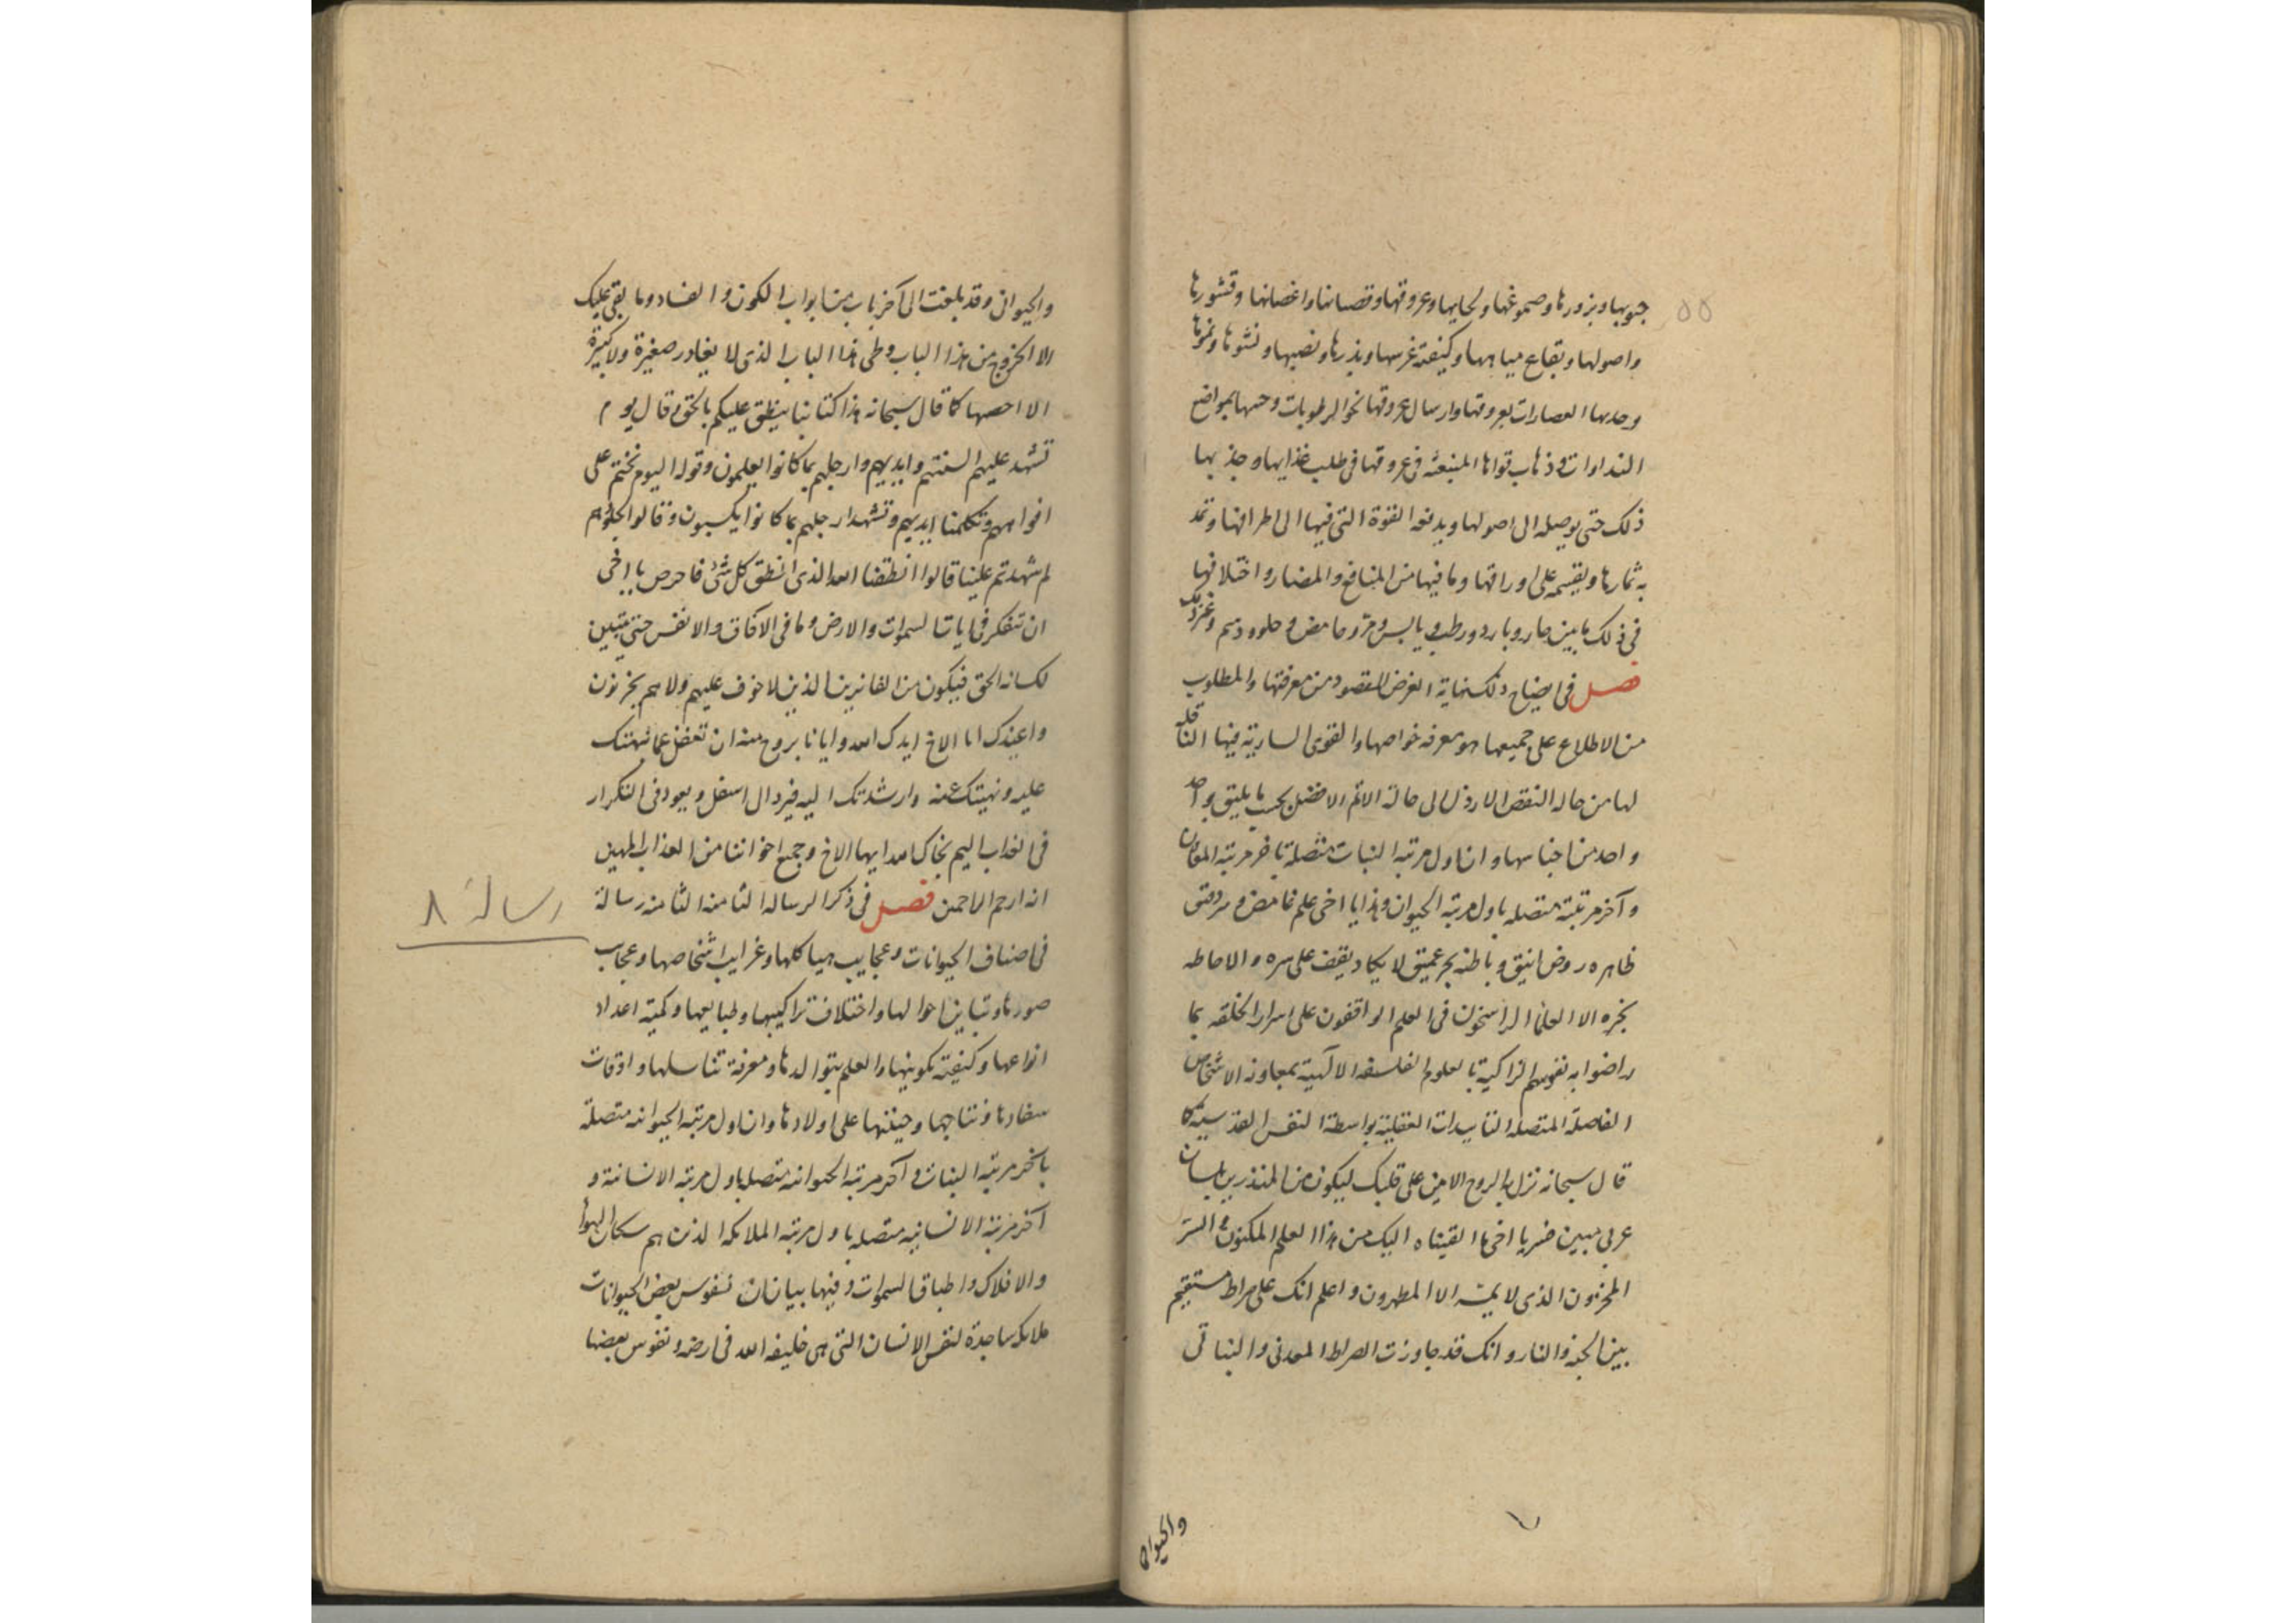 ٥٥
حبوبها وبزورها وصموغها ولحايها وعروقها وقضبانها واغصانها وقشورها
واصولها وبقاع مياهها وكيفية غرسها وبذرها ونصبها ونشوها ونموها
وجذبها العصارات بعروقها وارسال عروقها نحو الرطوبات وحسها بمواضع
النداوات وذهاب قواها المنبعثه فى عروقها فى طلب غذايها وجذبها
ذلك حتى يوصله الى اصولها ويدفعه القوة التى فيها الى اطرافها وتمد
به ثمارها ويقسمه على اوراقها وما فيها من المنافع والمضار واختلافها
فى ذلك ما بين حار وبارد ورطب ويابس ومر وحامض وحلو ودسم وغير ذلك
فصل فى ايضاح ذلك نهاية الغرض المقصود من معرفتها والمطلوب
من الاطلاع على جميعها هو معرفه خواصها والقوى السارية فيها الناقله
لها من حاله النقص الارذل الى حالة الاتم الافضل بحسب ما يليق بواحد
واحد من اجناسها وان اول مرتبه النبات متصلة باخر مرتبه المعادن
وآخر مرتبته متصله باول مرتبه الحيوان وهذا يا اخى علم غامض وسر دقيق
ظاهره روض انيق وباطنه بحر عميق لا يكاد يقف على سره والاحاطه
بخبره الا العلما الراسخون فى العلم الواقفون على اسرار الخلقه بما
راضوا به نفوسهم الزاكية بالعلوم الفلسفه الالهية بمعاونه الاشخاص
الفاضلة المتصله التاييدات العقلية بواسطة النفس القدسية كما
قال سبحانه نزل به الروح الامين على قلبك ليكون من المنذرين بلسان
عربى مبين يا اخى ما القيناه اليك من هذا العلم المكنون والسر
المخزون الذى لا يمسه الا المطهرون واعلم انك على صراط مستقيم
بين الجنه والنار وانك قد جاوزت الصراط المعدنى والنباتى
والحيوانى
والحيوانى وقد بلغت الى آخر باب من ابواب الكون والفساد وما بقى عليك
الا الخروج من هذا الباب وطى هذا الباب الذى لا يغادر صغيرة ولا كبيرة
الا احصها كما قال سبحانه هذا كتابنا ينطق عليكم بالحق وقال يوم
تشهد عليهم السنتهم وايديهم وارجلهم بما كانوا يعلمون وقوله اليوم نختم على
افواههم وتكلمنا ايديهم وتشهد ارجلهم بما كانوا يكسبون وقالوا لجلودهم
لم شهدتم علينا قالوا انطقنا الله الذى انطق كل شئ فاحرص يا اخى
ان تتفكر فى ايات السموات والارض وما فى الافاق والانفس حتى يتبين
لك انه الحق فيكون من الفايزين الذين لا خوف عليهم ولا هم يحزنون
واعيذك ايها الاخ ايدك الله وايانا بروح منه ان تغفل عما نبهتك
عليه ونهيتك عنه وارشدتك اليه فيرد الى اسفل ويعود فى التكرار
فى العذاب اليم نجاك الله ايها الاخ وجميع اخواننا من العذاب المهين
انه ارحم الراحمين فصل فى ذكر الرساله الثامنه الثامنه رسالة
رسالة ٨
فى اصناف الحيوانات وعجايب هياكلها وغرايب اشخاصها وعجايب
صورها وتباين احوالها واختلاف تراكيبها وطبايعها وكمية اعداد
انواعها وكيفية تكوينها والعلم بتوالدها ومعرفة تناسلها واوقات
سفادها ونتاجها وحنتها على اولادها وان اول مرتبه الحيوانيه متصلة
باخر مرتبه النبات وآخر مرتبه الحيوانيه متصل باول مرتبه الانسانية و
آخر مرتبه الانسانيه متصله باول مرتبه الملايكه الذين هم سكان الهوا
والافلاك واطباق السموات وفيها بيان ان نفوس بعض الحيوانات
ملايكه ساجدة لنفس الانسان التى هى خليفه الله فى ارضه ونفوس بعضها